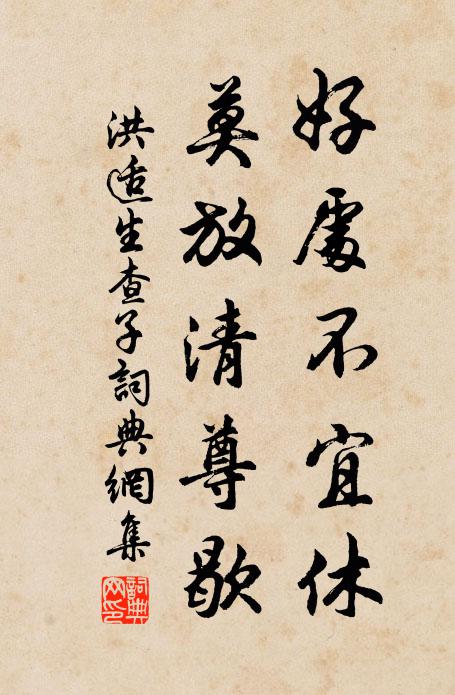 好處不宜休
莫放清尊歇
洪适生查子詞典網集
詞典網印